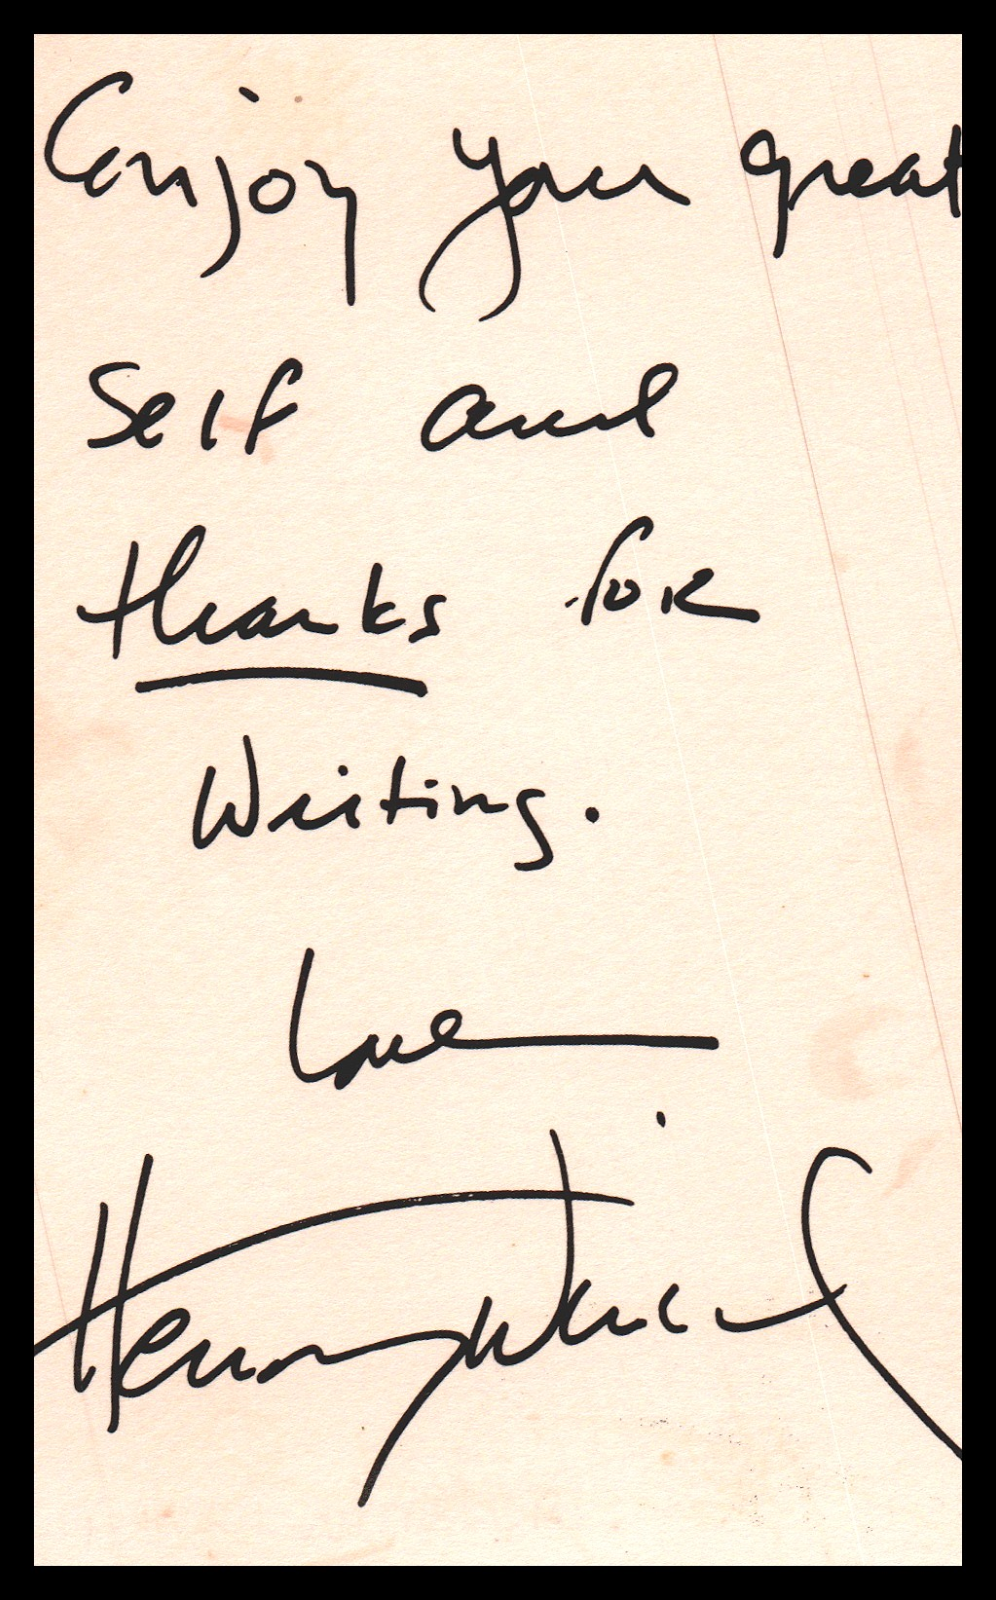 Enjoy your great
self and
thanks for
writing.
Love
Henry Winkler